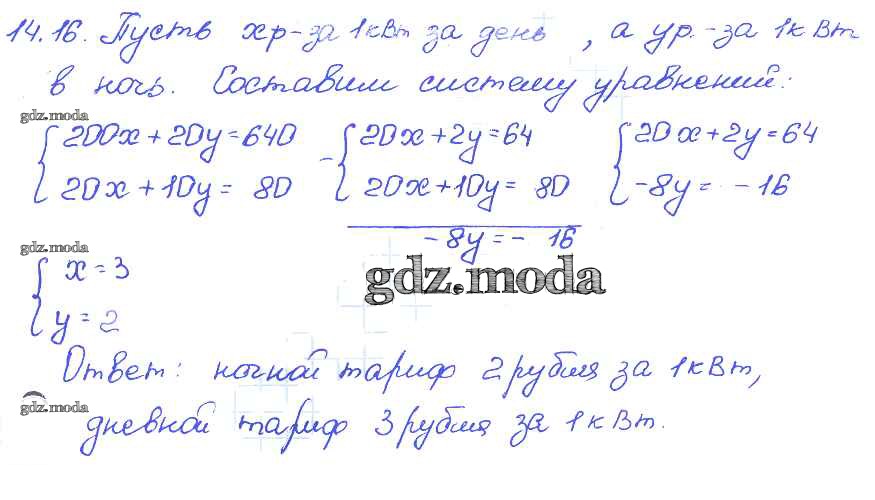 14.16. Пусть xр-за 1кВт за день, а yр.-за 1кВт
в ночь. Составим систему уравнений:
gdz.moda
{200x+20y=640 -{20x+2y=64 {20x+2y=64
{20x+10y= 80 {20x+10y= 80 {-8y= -16
-8y=- 16
gdz.moda
gdz.moda
{x=3
{y=2
Ответ: ночной тариф 2рубля за 1кВт,
gdz.moda
дневной тариф 3рубля за 1кВт.